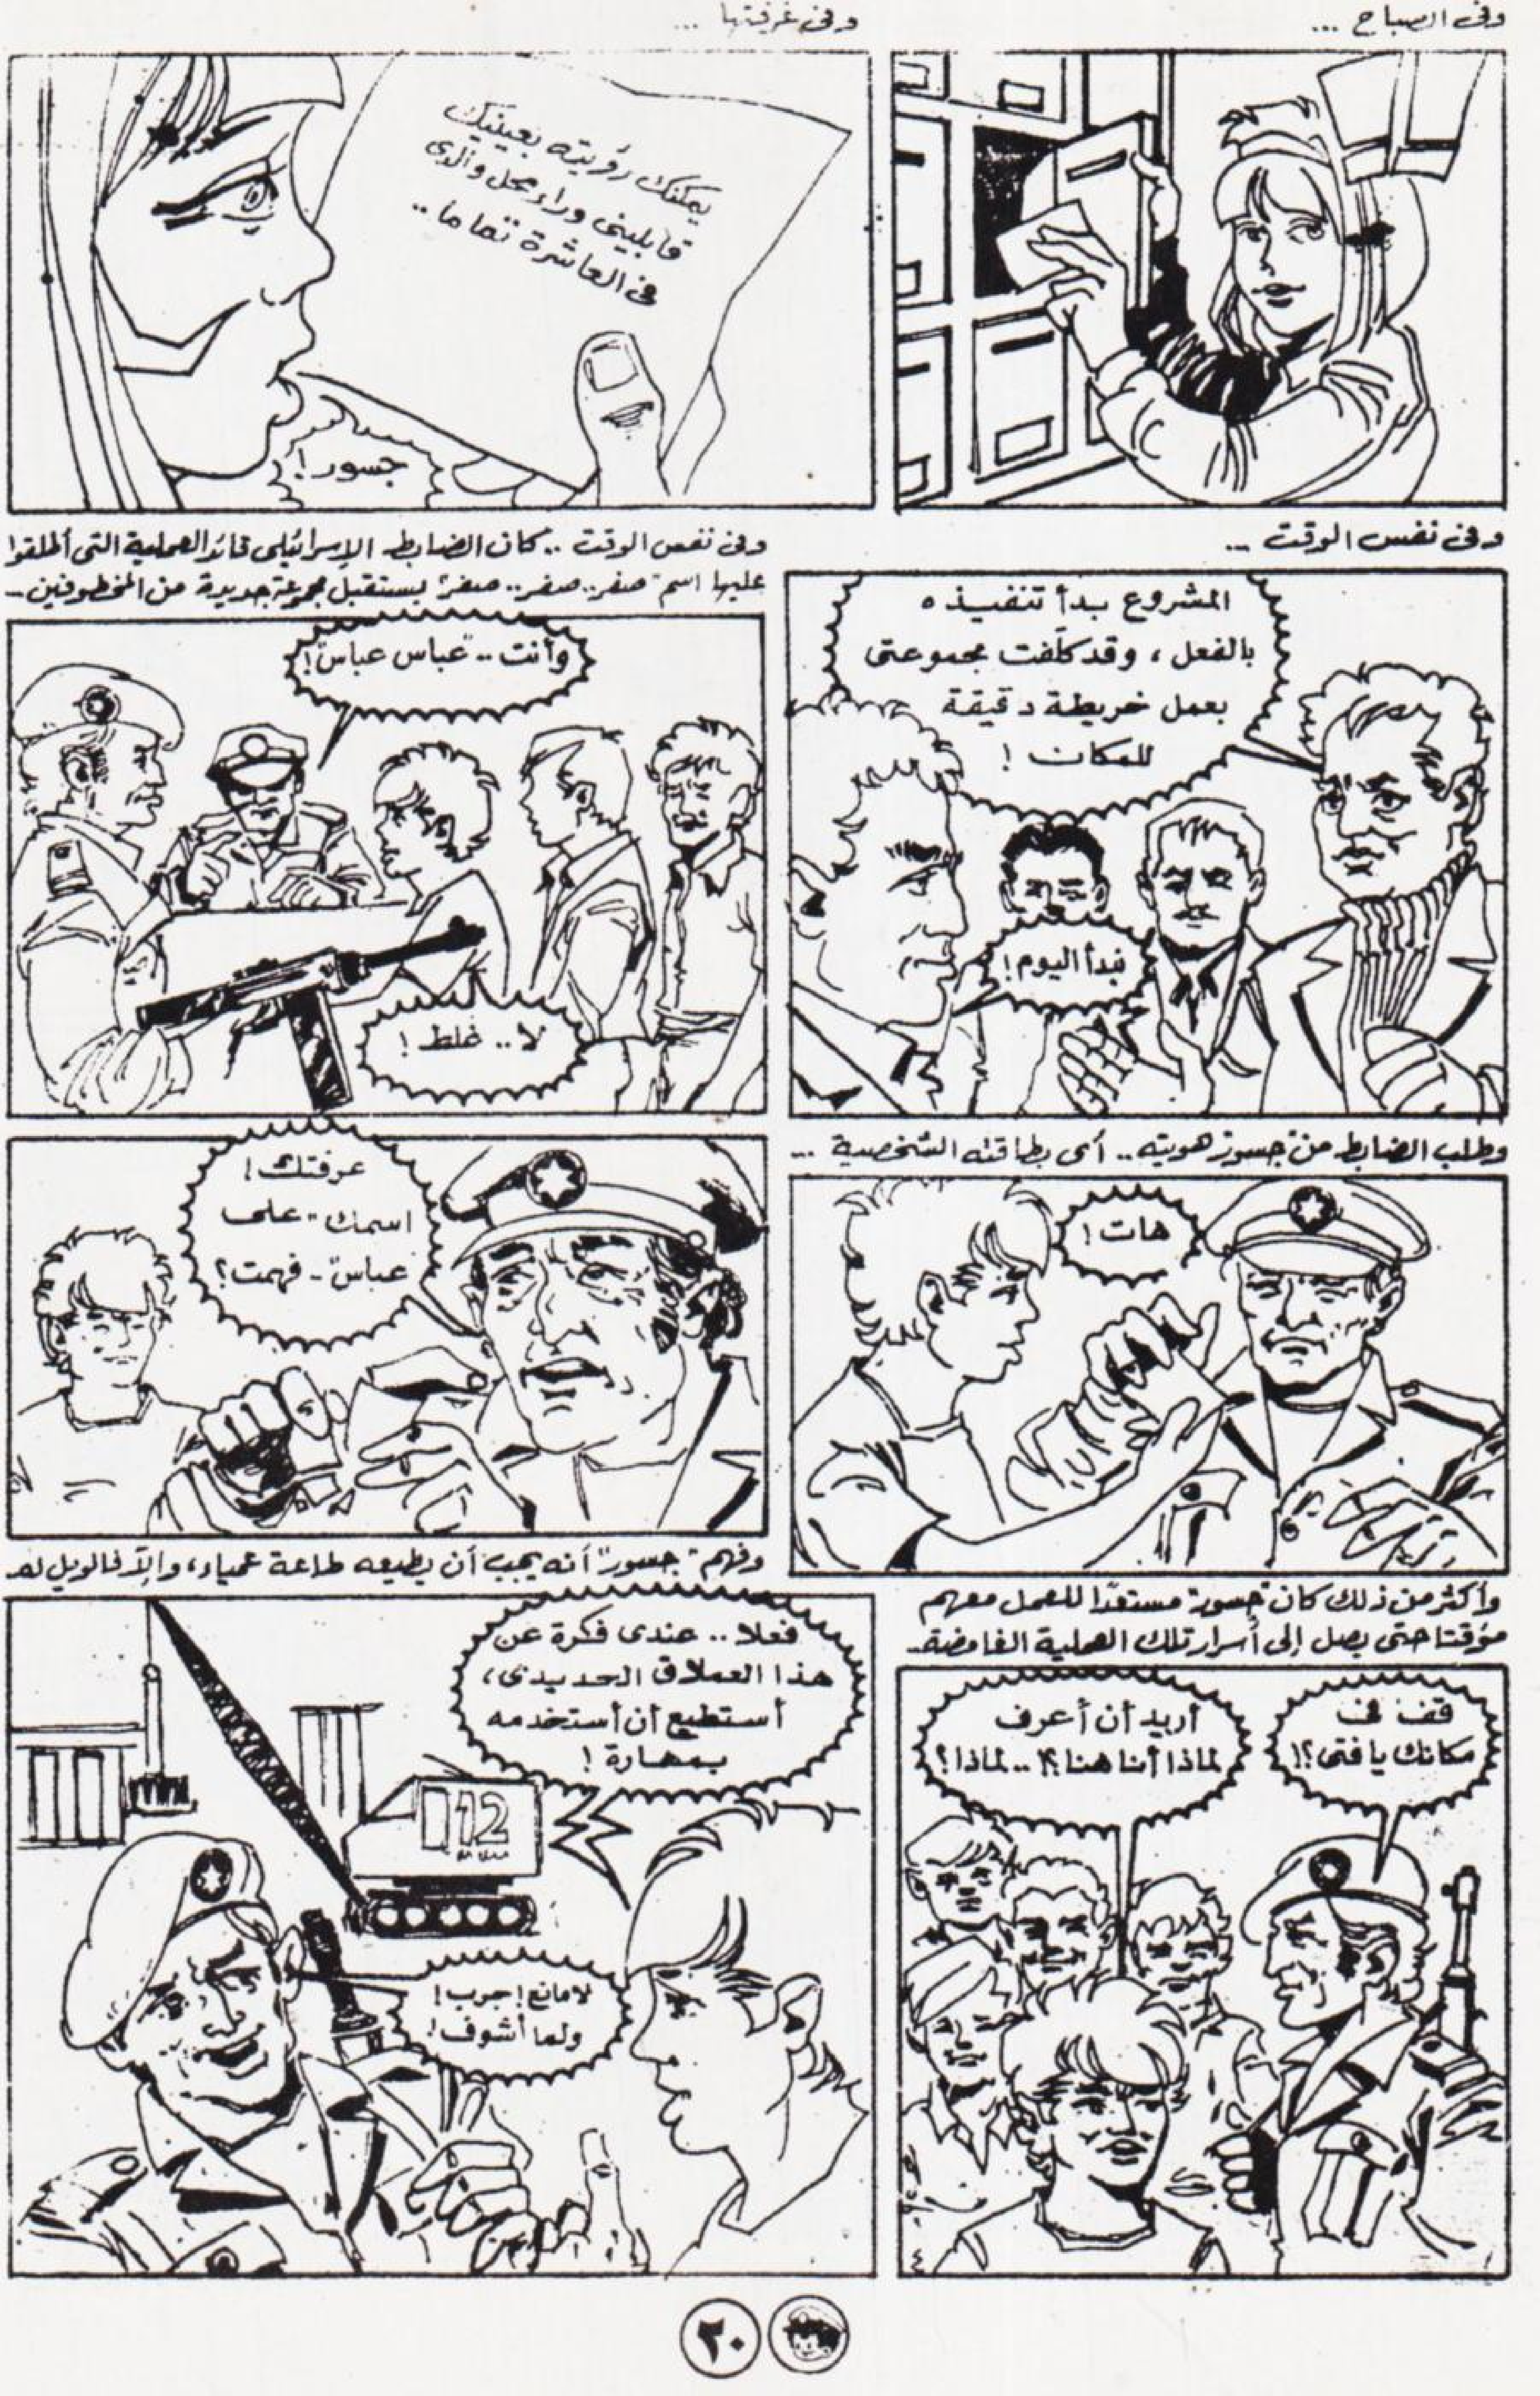 وفى الصباح ...
وفى غرفتها ...
يمكنك رؤيته بعينيك
قابلينى وراء محل والدى
فى العاشرة تماما ..
جسور!
وفى نفس الوقت ...
المشروع بدأ تنفيذه
بالفعل، وقد كلّفت مجموعتى
بعمل خريطة دقيقة
للمكان!
نبدأ اليوم!
وفى نفس الوقت .. كان الضابط الإسرائيلى قائد العملية التى أطلقوا
عليها اسم "صفر.. صفر.. صفر" يستقبل مجموعة جديدة من المخطوفين ..
وأنت .. "عباس عباس"!
لا .. غلط!
وطلب الضابط من "جسور" هويته .. أى بطاقته الشخصية ...
هات!
عرفتك!
اسمك "على
عباس" - فهمت؟
وأكثر من ذلك كان "جسور" مستعدًا للعمل معهم
مؤقتا حتى يصل إلى أسرار تلك العملية الغامضة ..
قف فى
مكانك يا فتى؟!
أريد أن أعرف
لماذا أنا هنا؟! .. لماذا؟
وفهم "جسور" أنه يجب أن يطيعه طاعة عمياء، وإلا فالويل له
فعلا .. عندى فكرة عن
هذا العملاق الحديدى،
أستطيع أن أستخدمه
بمهارة!
12
لا مانع! جرب!
ولما أشوف!
٢٠